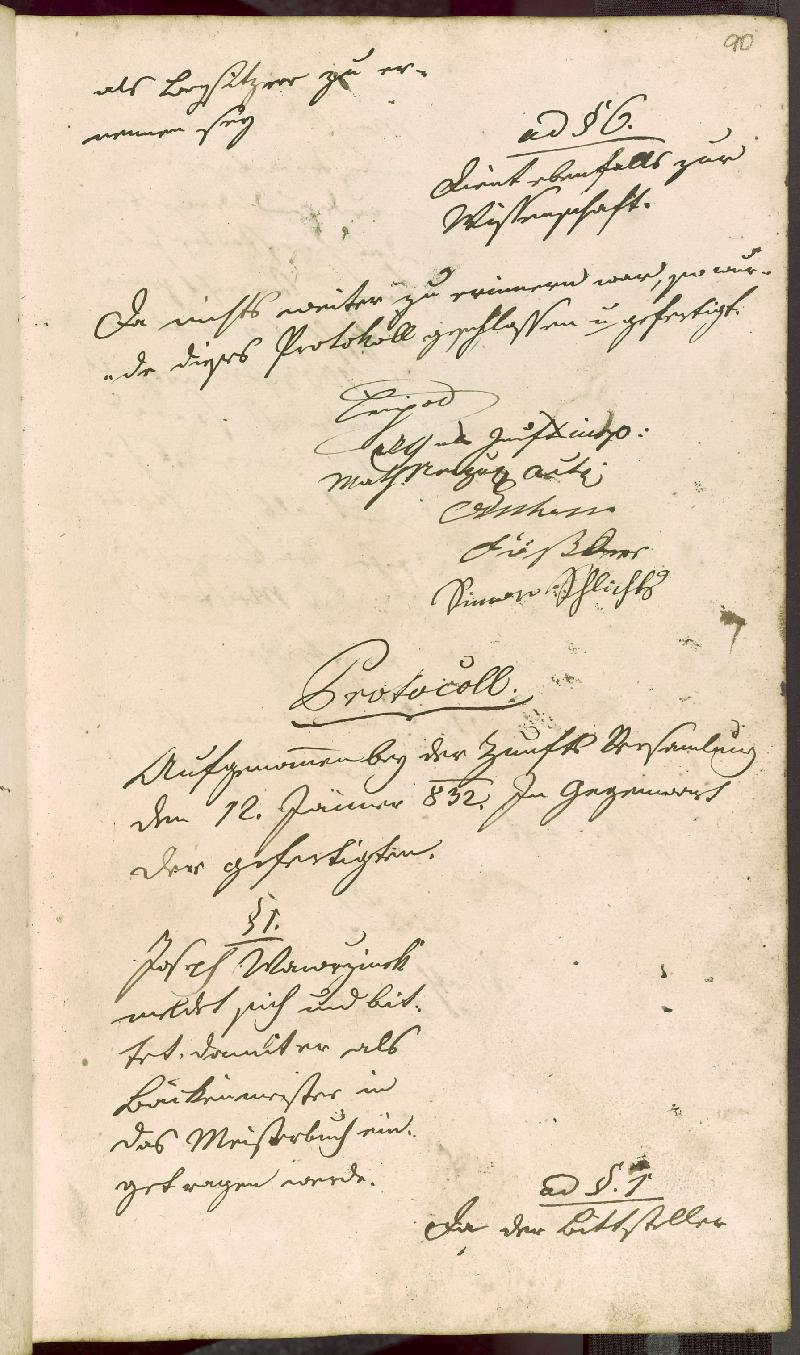 90
als Beysitzer zu er-
nennen sey
ad § 6.
Dient ebenfalls zur
Wissenschaft.
Da nichts weiter zu erinnern war, so wur-
de dieses Protokoll geschlossen u gefertigt.
Math
Simon Schlichts
Protocoll.
Aufgenomen bey der Zunfts Versamlung
den 12. Jänner 832. In Gegenwart
der gefertigten.
§ 1.
Joseph Wawrzinek
meldet sich und bit-
tet, damit er als
Bäckenmeister in
das Meisterbuch ein-
getragen werde.
ad §. 1
Da der Bittsteller